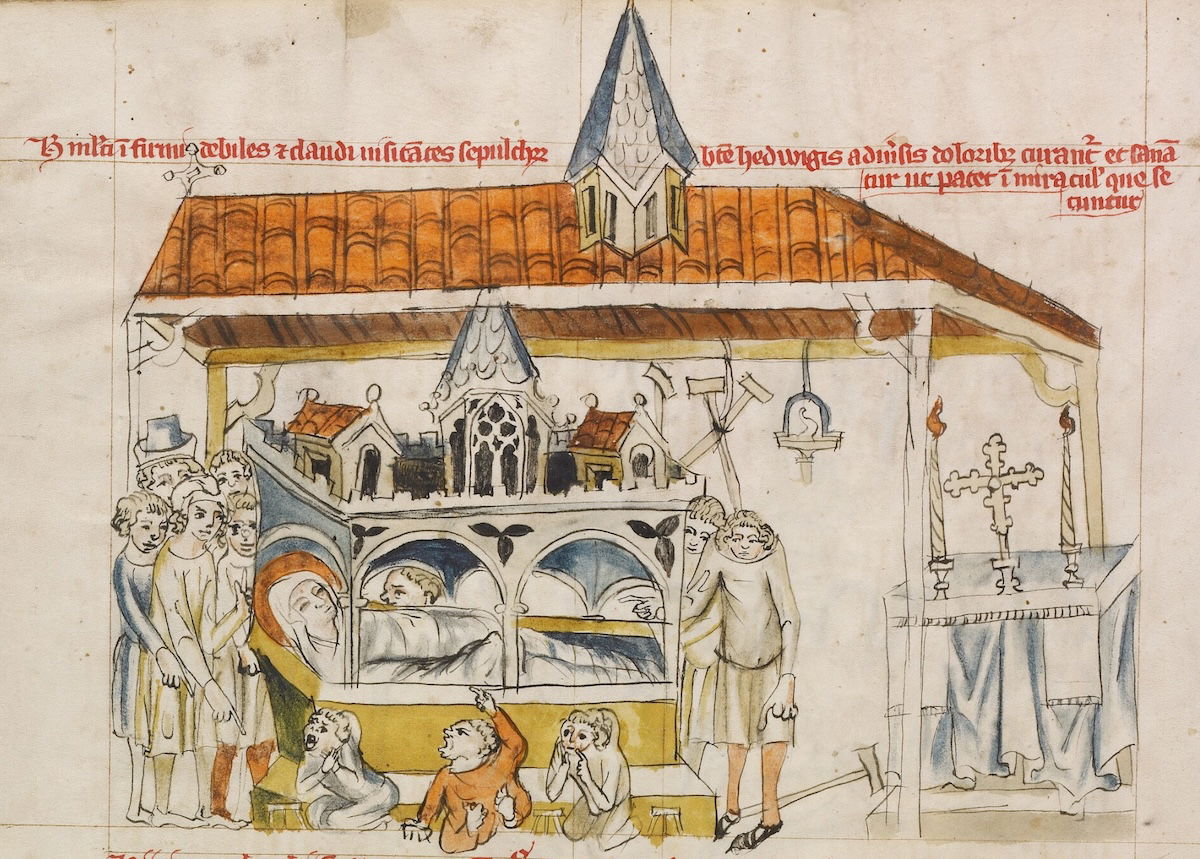 Hi multi ĩfirmi debiles ⁊ claudi uisitãtes sepulchr̃ bt̃e hedwigis a diũsis doloribꝫ curant᷑ et sana
tur ut patet ĩ miracul᷑ que se
cuntur